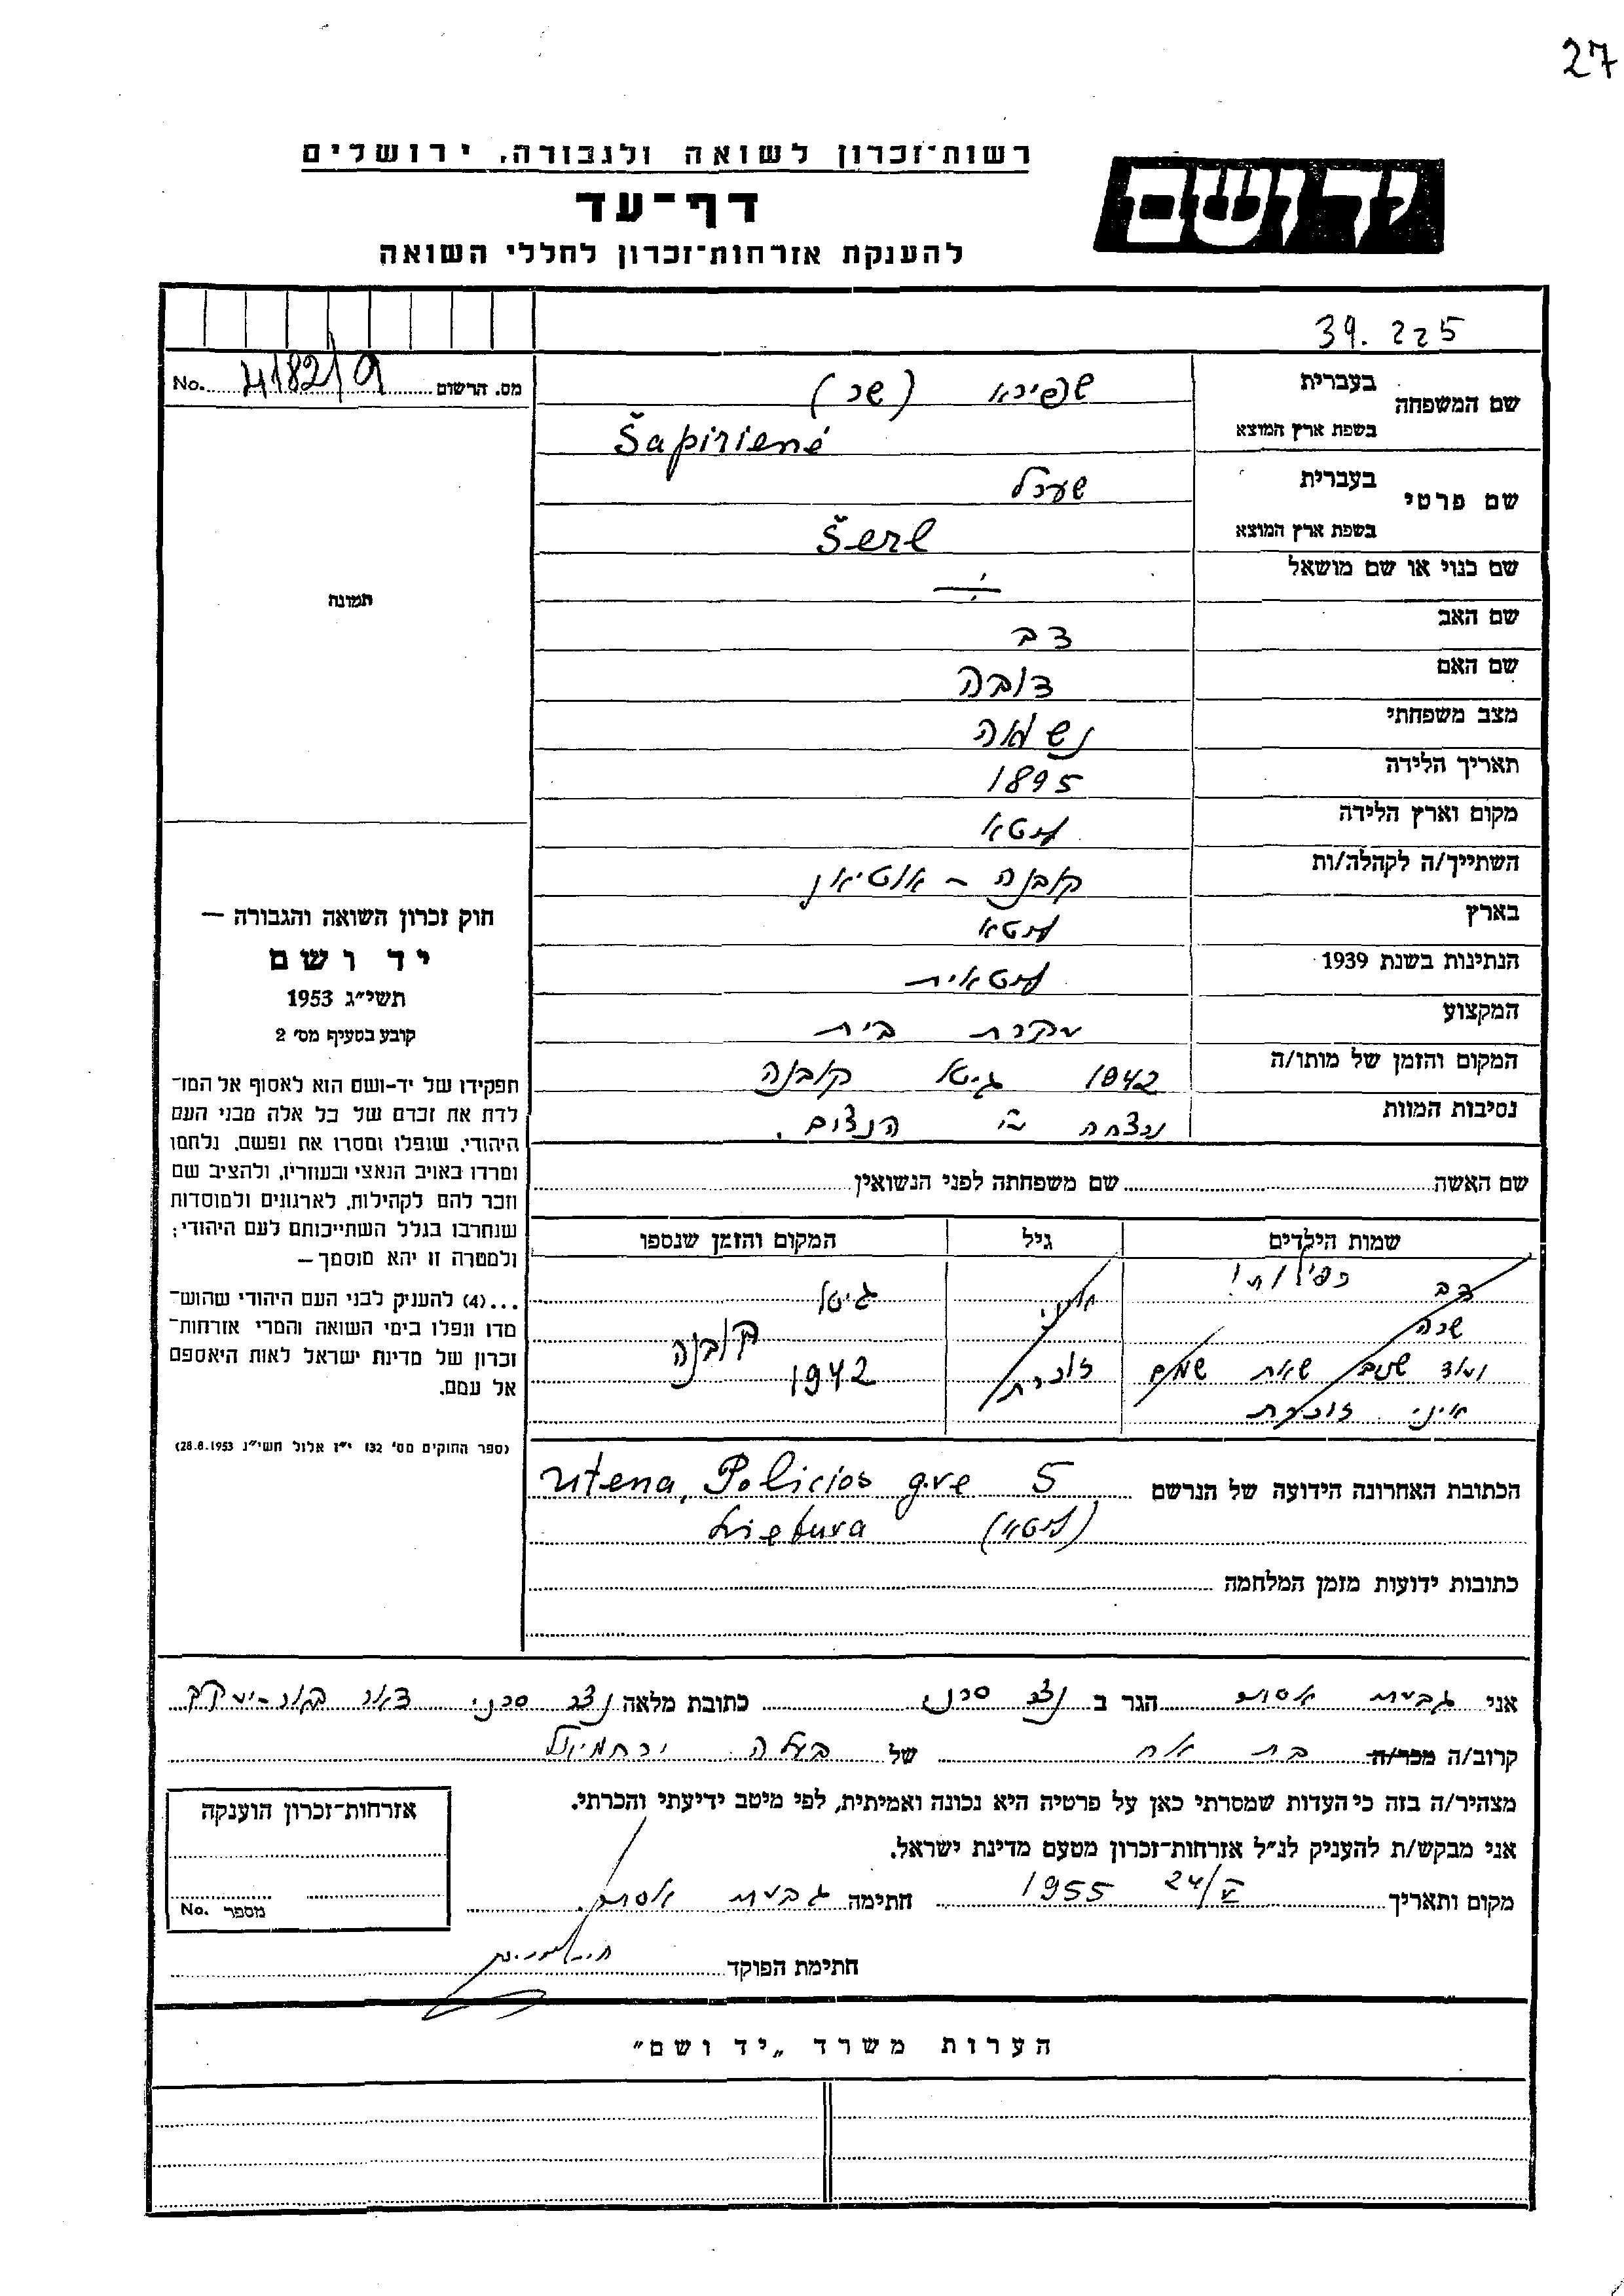 27
רשות-זכרון לשואה ולגבורה, ירושלים
יד ושם
דף-עד
להענקת אזרחות-זכרון לחללי השואה
39.225
No. 4182/9 מס. הרשום
שם המשפחה בעברית שפירא (שר)
בשפת ארץ המוצא Šapirienė
שם פרטי בעברית שערל
בשפת ארץ המוצא Šerl
שם כנוי או שם מושאל
שם האב דב
שם האם דובה
מצב משפחתי נשואה
תאריך הלידה 1895
מקום וארץ הלידה ליטא
השתייך/ה לקהלה/ות קובנה - אוטיאן
בארץ ליטא
הנתינות בשנת 1939 ליטאית
המקצוע עקרת בית
המקום והזמן של מותו/ה 1942 גיטו קובנה
נסיבות המוות נרצחה ע"י הנאצים.
שם האשה שם משפחתה לפני הנשואין
שמות הילדים גיל המקום והזמן שנספו
דב גיטו
שרה קובנה
ועוד שנים שאת שמם זוכרת 1942
אינני זוכרת
הכתובת האחרונה הידועה של הנרשם Utena, Policios g-ve 5
Lietuva (ליטא)
כתובות ידועות מזמן המלחמה
תמונה
חוק זכרון השואה והגבורה —
יד ושם
תשי"ג 1953
קובע בסעיף מס' 2
תפקידו של יד-ושם הוא לאסוף אל המו-
לדת את זכרם של כל אלה מבני העם
היהודי, שנפלו ומסרו את נפשם, נלחמו
ומרדו באויב הנאצי ובעוזריו, ולהציב שם
וזכר להם לקהילות, לארגונים ולמוסדות
שנחרבו בגלל השתייכותם לעם היהודי;
ולמטרה זו יהא מוסמך —
...(4) להעניק לבני העם היהודי שהוש-
מדו ונפלו בימי השואה והמרי אזרחות-
זכרון של מדינת ישראל לאות היאספם
אל עמם.
(ספר החוקים מס' 132 י"ז אלול תשי"ג 28.8.1953)
אני גבעת אסתר הגר ב נצר סרני כתובת מלאה נצר סרני דאר באר-יעקב
קרוב/ה מכר/ה בת אח של בעלה ירחמיאל
מצהיר/ה בזה כי העדות שמסרתי כאן על פרטיה היא נכונה ואמיתית, לפי מיטב ידיעתי והכרתי.
אני מבקש/ת להעניק לנ"ל אזרחות-זכרון מטעם מדינת ישראל.
מקום ותאריך 24/V 1955 חתימה גבעת אסתר
חתימת הפוקד
אזרחות-זכרון הוענקה
מספר No.
הערות משרד "יד ושם"